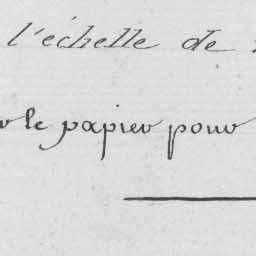 l'échelle de
le papier pour